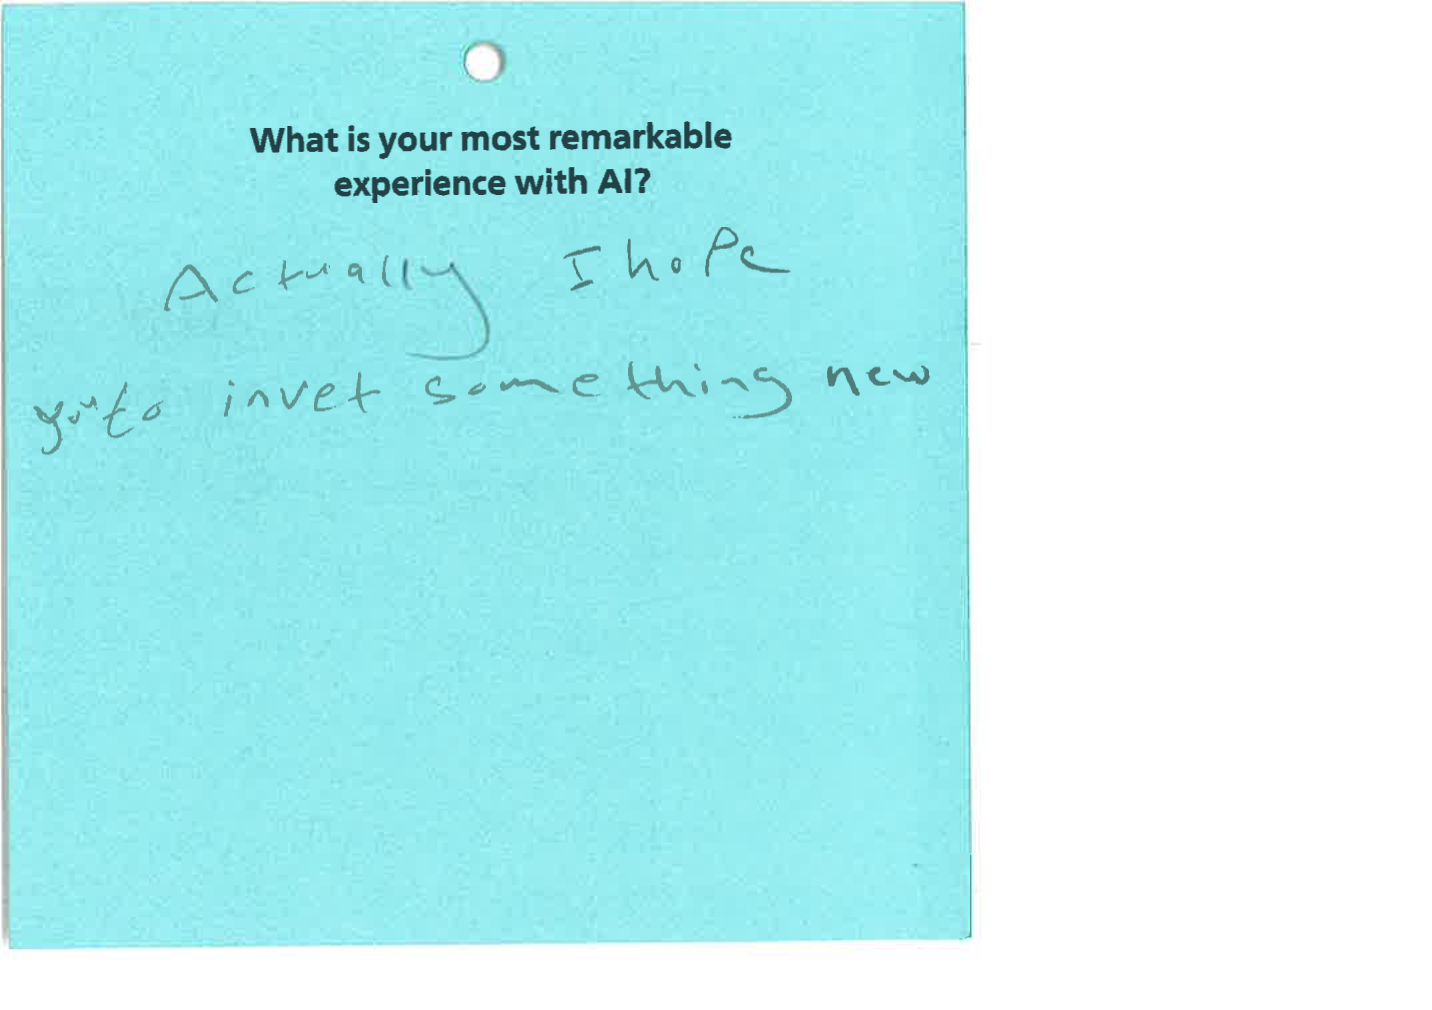 What is your most remarkable
experience with AI?
Actually I hope
you to invet something new